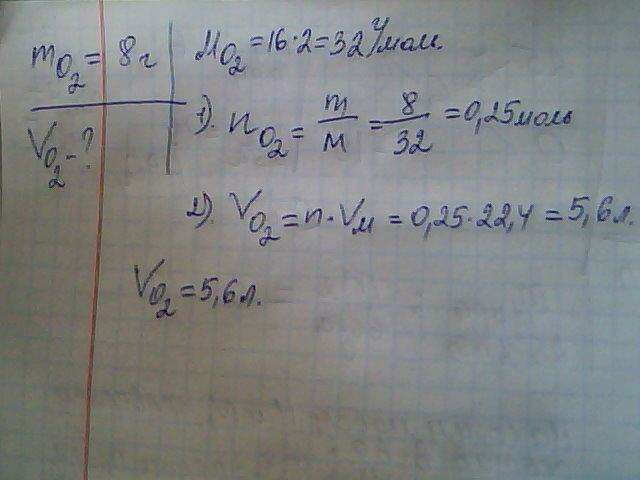 mO₂ = 8 г
MO₂ = 16·2 = 32 г/мол.
VO₂ - ?
1). nO₂ = m/M = 8/32 = 0,25 моль
2). VO₂ = n·Vм = 0,25·22,4 = 5,6 л.
VO₂ = 5,6 л.